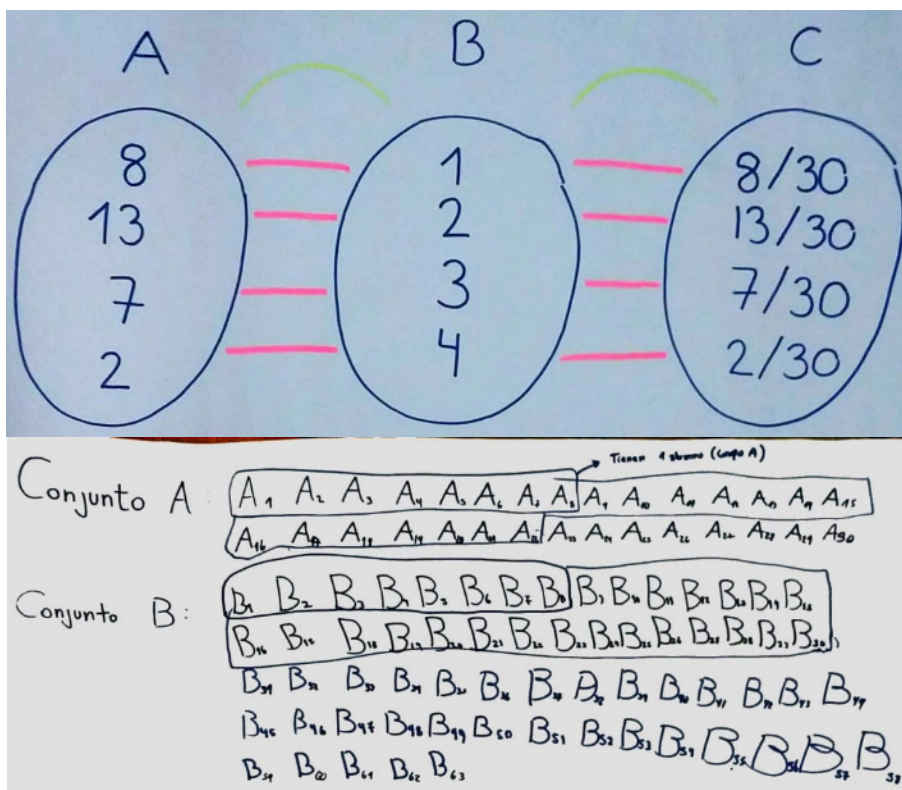 A B C
8 1 8/30
13 2 13/30
7 3 7/30
2 4 2/30
Tienen 1 alumno (Grupo A)
Conjunto A: A1 A2 A3 A4 A5 A6 A7 A8 A9 A10 A11 A12 A13 A14 A15
A16 A17 A18 A19 A20 A21 A22 A23 A24 A25 A26 A27 A28 A29 A30
Conjunto B: B1 B2 B3 B4 B5 B6 B7 B8 B9 B10 B11 B12 B13 B14 B15
B16 B17 B18 B19 B20 B21 B22 B23 B24 B25 B26 B27 B28 B29 B30
B31 B32 B33 B34 B35 B36 B37 B38 B39 B40 B41 B42 B43 B44
B45 B46 B47 B48 B49 B50 B51 B52 B53 B54 B55 B56 B57 B58
B59 B60 B61 B62 B63